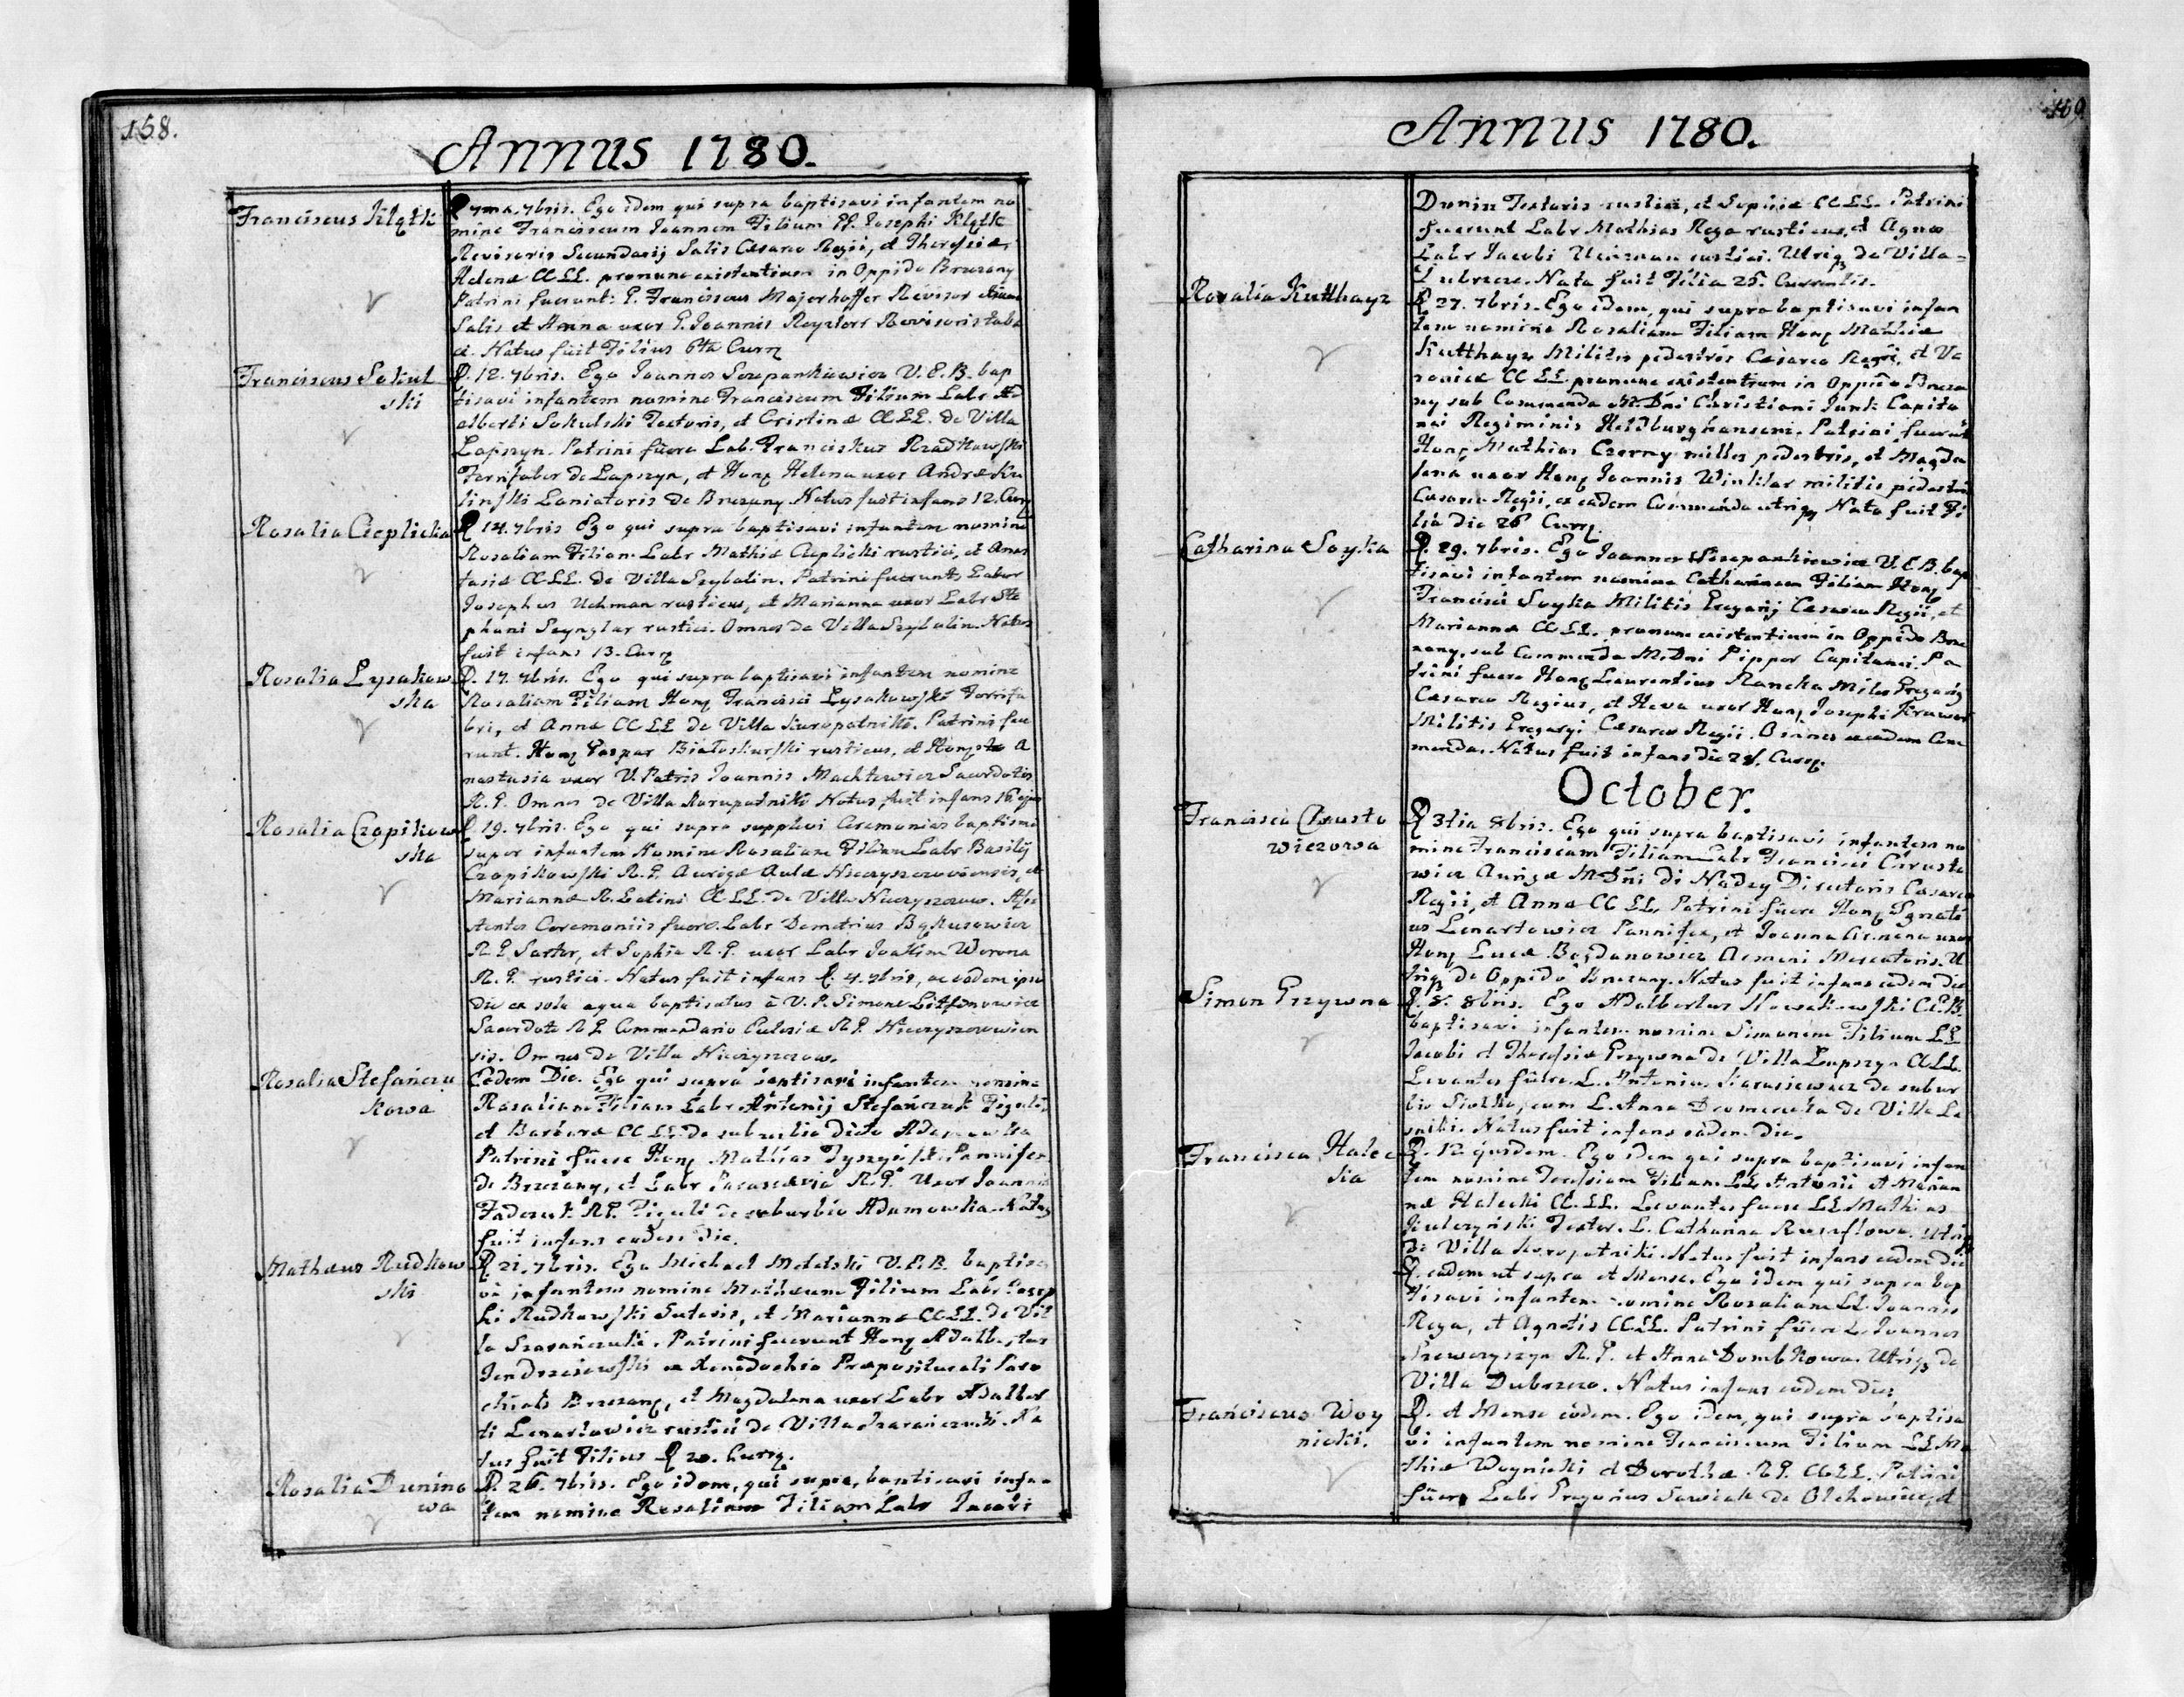 158.
Annus 1780.
Franciscus Klątk
D 7ma. 7bris. Ego idem qui supra baptisavi infantem no
mine Franciscum Joannem Filium PP. Josephi Klątk
Revisoris Secundarij Salis Cæsareo Regii, et Theressiæ
Helenæ CCLL. pronunc existentium in Oppido Brzezany
Patrini fuerunt: P. Franciscus Majerhoffer Revisor etiam
Salis et Anna uxor P. Joannis Revisoris taba
ci. Natus fuit Filius 6ta Curr
Franciscus Sokul
ski
D. 12. 7bris. Ego Joannes Szczepankiewicz V. E. B. bap
tisavi infantem nomine Franciscum Filium Labr Ad
alberti Sokulski Textoris, et Cristinæ CCLL. de Villa
Lapszyn. Patrini fuere Lab. Franciskus Rzadkowski
Ferrifaber de Lapszyn, et Hon Helena uxor Andreæ Ku
linski Laniatoris de Brzezany. Natus fuit infans 12. Curr
Rosalia Cieplicka
D 14. 7bris Ego qui supra baptisavi infantem nomine
Rosaliam Filiam Labr Mathiæ Cieplicki rustici, et Anas
tasiæ CCLL. de Villa Szybalin. Patrini fuerunt Labor
Josephus Uchman rusticus, et Marianna uxor Labr Ste
phani Szynglar rustici. Omnes de Villa Szybalin. Natus
fuit infans 13. Curr
Rosalia Lysakow
ska
D. 17. 7bris. Ego qui supra baptisavi infantem nomine
Rosaliam Filiam Hon Francisci Lysakowski Ferrifa
bri, et Annæ CCLL de Villa Kuropatniki. Patrini fue
runt. Hon Caspar Białoskurski rusticus, et Hon A
nastasia uxor V. Patris Joannis Machtewicz Sacerdotis
R. G. Omnes de Villa Kuropatniki Natus fuit infans 16
Rosalia Czopikow
ska
D. 19. 7bris. Ego qui supra supplevi Ceremonias baptismi
super infantem Nomine Rosaliam Filiam Labr Basilij
Czopikowski R. G. Aurigæ Aulæ Nieczyszoviensis, et
Mariannæ R. Latini CCLL. de Villa Naryszczow. Assi
stentes Ceremoniis fuere. Labr Demetrius
R. G. Sartor, et Sophia R. G. uxor Labr Joakim Worona
R. G. rustici. Natus fuit infans D. 4. 7bris, ac eodem ipso
die ex sola aqua baptisatus à V. P. Simone
Sacerdote R. G. Commendario Ecclesiæ R. G.
sis. Omnes de Villa
Rosalia Stefańczu
kowa
Eodem Die. Ego qui supra baptisavi infantem nomine
Rosaliam Filiam Labr Antonij Stefańczuk Figuli,
et Barbaræ CCLL. de suburbio dicto Adamowka
Patrini fuere Hon Mathias Pannifex
de Brzezany, et Labr Parascevia R. G. Uxor Joannis
R. G. Figuli de suburbio Adamowka. Natus
fuit infans eadem die.
Mathæus Rudkow
ski
D 21. 7bris. Ego Michael V. E. B. baptisa
vi infantem nomine Mathæum Filium Labr Josep
hi Rudkowski Sutoris, et Mariannæ CCLL. de Vil
la Szarańczuki. Patrini fuerunt Hon Adalbertus
Jendrzeiewski ex Xenodochio Præpositurali Paro
chiali Brzezany, et Magdalena uxor Labr Adalber
ti Lenartowicz rustici de Villa Szarańczuki. Na
tus fuit Filius D 20. Curr.
Rosalia Dunino
wa
D. 26. 7bris. Ego idem, qui supra, baptisavi infan
tem nomine Rosaliam Filiam Labr Jacobi
169
Annus 1780.
Dunin Textoris rustici, et Sophiæ CCLL. Patrini
fuerunt Labr Mathias Rega rusticus, et Agnes
Labr Jacobi rustici. Utriq de Villa
Dubrzcze. Nata fuit Filia 25. Currentis.
Rosalia Kutthayz
D 27. 7bris. Ego idem, qui supra baptisavi infan
tem nomine Rosaliam Filiam Hon Mathiæ
Kutthayz Militis pedestres Cæsareo Regii, et Ve
ronicæ CCLL pronunc existentium in Oppido Brzeza
ny sub Commenda M. Dni Christiani Junk Capita
nei Regiminis Heldburghanseni. Patrini fuerunt
Hon Mathias Czerny milles pedestris, et Magda
lena uxor Hon Joannis Winkler militis pedestris
Cæsareo Regii, ex eadem Commenda utriq. Nata fuit Fi
lia die 26 Curr.
Catharina Soyka
D. 29. 7bris. Ego Joannes Szczepankiewicz V. E. B. bap
tisavi infantem nomine Catharinam Filiam Hon
Francisci Soyka Militis Gregarij Cæsareo Regii, et
Mariannæ CCLL. pronunc existentium in Oppido Brze
zany, sub Commenda M. Dni Pipper Capitanei. Pa
trini fuere Hon Laurentius Rancka Miles Gregarij
Cæsareo Regius, et Heva uxor Hon Josephi
Militis Gregarij Cæsareo Regii. Omnes ex eadem Com
menda. Natus fuit infans die 28. Curr.
October.
Francisca Chrusto
wiczowa
D 3tia 8bris. Ego qui supra baptisavi infantem no
mine Franciscam Filiam Labr Francisci Chrusto
wicz Aurigæ M. Dni di Nadzy Directoris Cæsareo
Regii, et Annæ CCLL. Patrini fuere Hon Ignati
us Lenartowicz Pannifex, et Joanna Armena uxor
Hon Lucæ Bogdanowicz Armeni Mercatoris. U
triq de Oppido Brzezany. Natus fuit infans eadem die
Simon Przywna
D. 8. 8bris. Ego Adalbertus Nowakowski C. E. B.
baptisavi infantem nomine Simonem Filium LL
Jacobi et Theressiæ Przywna de Villa Lapszyn CCLL.
Levantes fuere. L. Antonius Karassiewicz de subur
bio Siołko, cum L. Anna de Villa Le
sniki. Natus fuit infans eadem die.
Francisca Halec
ka
D. 12. ejusdem. Ego idem qui supra baptisavi infan
tem nomine Filiam LL Antonii et Marian
næ Halecki CCLL. Levantes fuere LL Mathias
Textor. L. Catharina utriq
de Villa Kuropatniki. Natus fuit infans eodem die
D. eadem ut supra et Mense. Ego idem qui supra bap
tisavi infantem nomine Rosaliam LL Joannis
Rega, et Agnetis CCLL. Patrini fuere L. Joannes
R. G. et Anna Dombkowa. Utriq de
Villa Dubrzcze. Natus infans eodem die,
Franciscus Woy
nicki.
D. et Mense eodem. Ego idem, qui supra baptisa
vi infantem nomine Franciscum Filium LL Ma
thiæ Woynicki et Dorotheæ R. G. CCLL. Patrini
fuere Labr Gregorius Sawczuk de Olchowiec, et